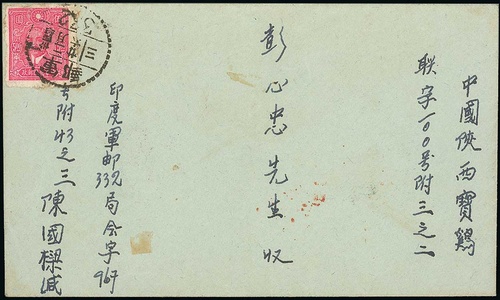 中國陝西寶鷄
聯字一00号附三之二
彭心忠先生收
印度軍邮332局令字967
号附43之三陳國樑緘
軍郵